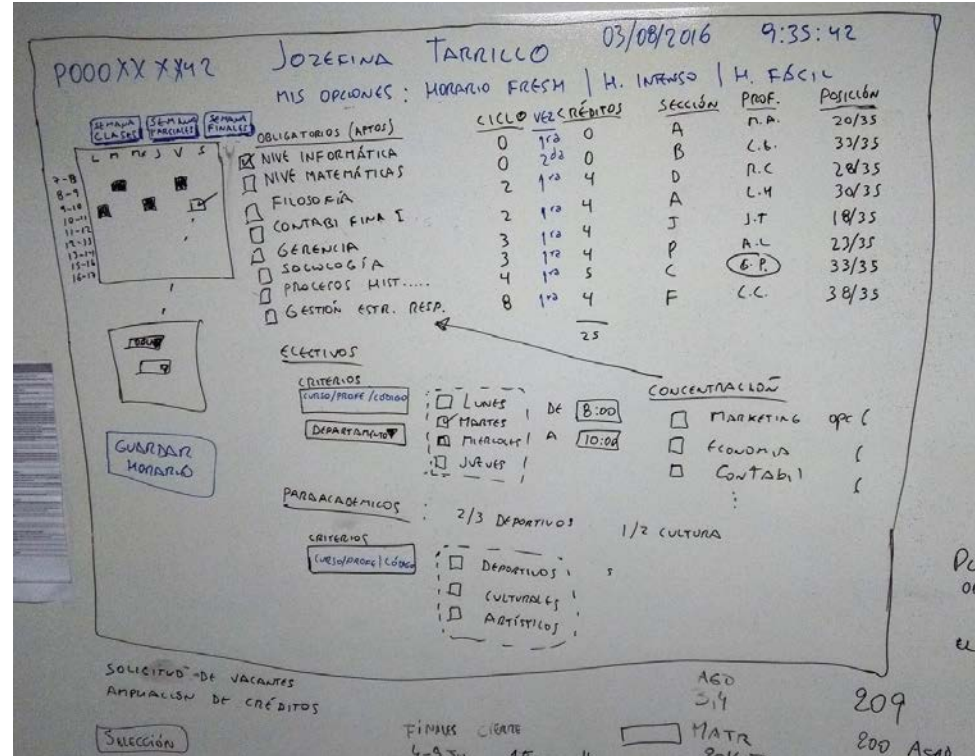 P000XXXX42 JOZEFINA TARRILLO 03/08/2016 9:35:42
MIS OPCIONES: HORARIO FRESH | H. INTENSO | H. FÁCIL
SEMANA CLASES SEMANA PARCIALES SEMANA FINALES
L M Mi J V S
7-8
8-9
9-10
10-11
11-12
12-13
13-14
15-16
16-17
OBLIGATORIOS (APTOS) CICLO VEZ CRÉDITOS SECCIÓN PROF. POSICIÓN
NIVE INFORMÁTICA 0 1ra 0 A M.A. 20/35
NIVE MATEMÁTICAS 0 2da 0 B C.G. 33/35
FILOSOFÍA 2 1ra 4 D R.C 28/35
CONTABI FINA I 2 1ra 4 A L.H 30/35
GERENCIA 3 1ra 4 J J.T 18/35
SOCIOLOGÍA 3 1ra 4 P A.L 23/35
PROCESOS HIST..... 4 1ra 5 C G.P. 33/35
GESTIÓN ESTR. RESP. 8 1ra 4 F C.C. 38/35
25
GUARDAR
HORARIO
ELECTIVOS
CRITERIOS
CURSO/PROFE/CÓDIGO
DEPARTAMENTO
LUNES
MARTES
MIERCOLES
JUEVES
DE 8:00
A 10:00
CONCENTRACIÓN
MARKETING opc (
ECONOMIA (
CONTABIL (
PARAACADEMICOS : 2/3 DEPORTIVOS 1/2 CULTURA
CRITERIOS
CURSO/PROFE/CÓDIGO
DEPORTIVOS
CULTURALES
ARTÍSTICOS
SOLICITUD DE VACANTES
AMPLIACION DE CRÉDITOS
SELECCIÓN
FINALES CIERRE
AGO
3,4
MATR
209
200